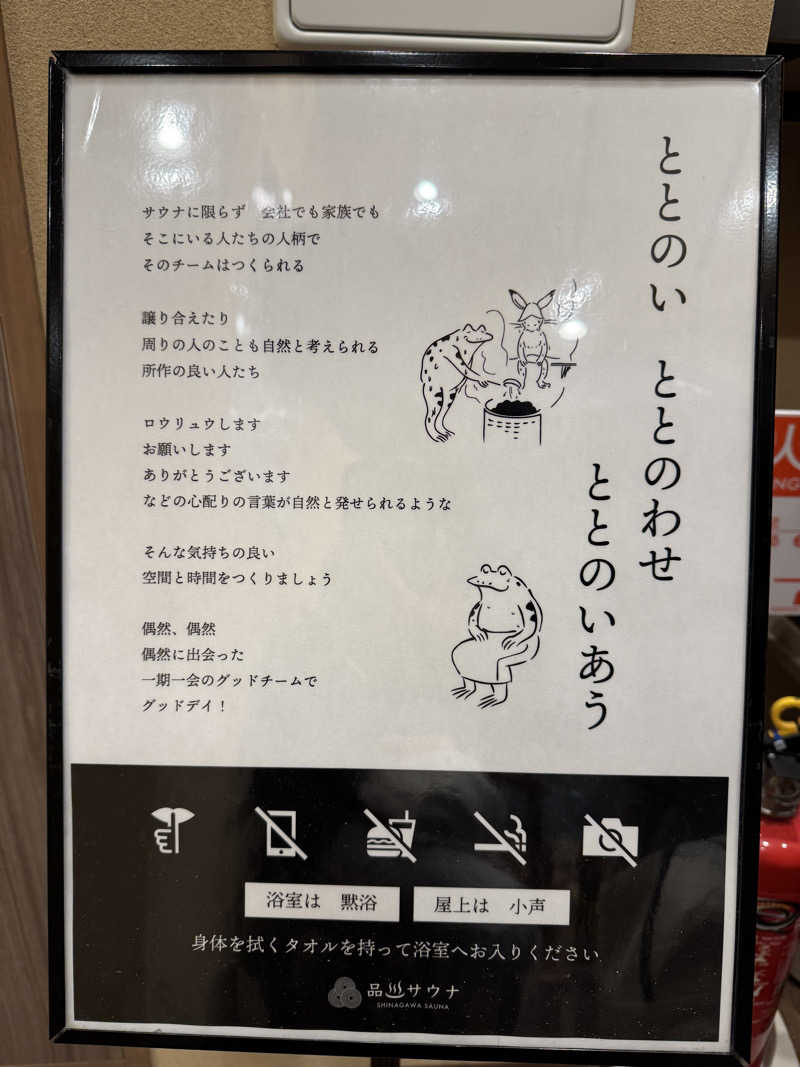 ととのい　ととのわせ
ととのいあう
サウナに限らず　会社でも家族でも
そこにいる人たちの人柄で
そのチームはつくられる
譲り合えたり
周りの人のことも自然と考えられる
所作の良い人たち
ロウリュウします
お願いします
ありがとうございます
などの心配りの言葉が自然と発せられるような
そんな気持ちの良い
空間と時間をつくりましょう
偶然、偶然
偶然に出会った
一期一会のグッドチームで
グッドデイ！
浴室は　黙浴
屋上は　小声
身体を拭くタオルを持って浴室へお入りください
品川サウナ
SHINAGAWA SAUNA
人
NG